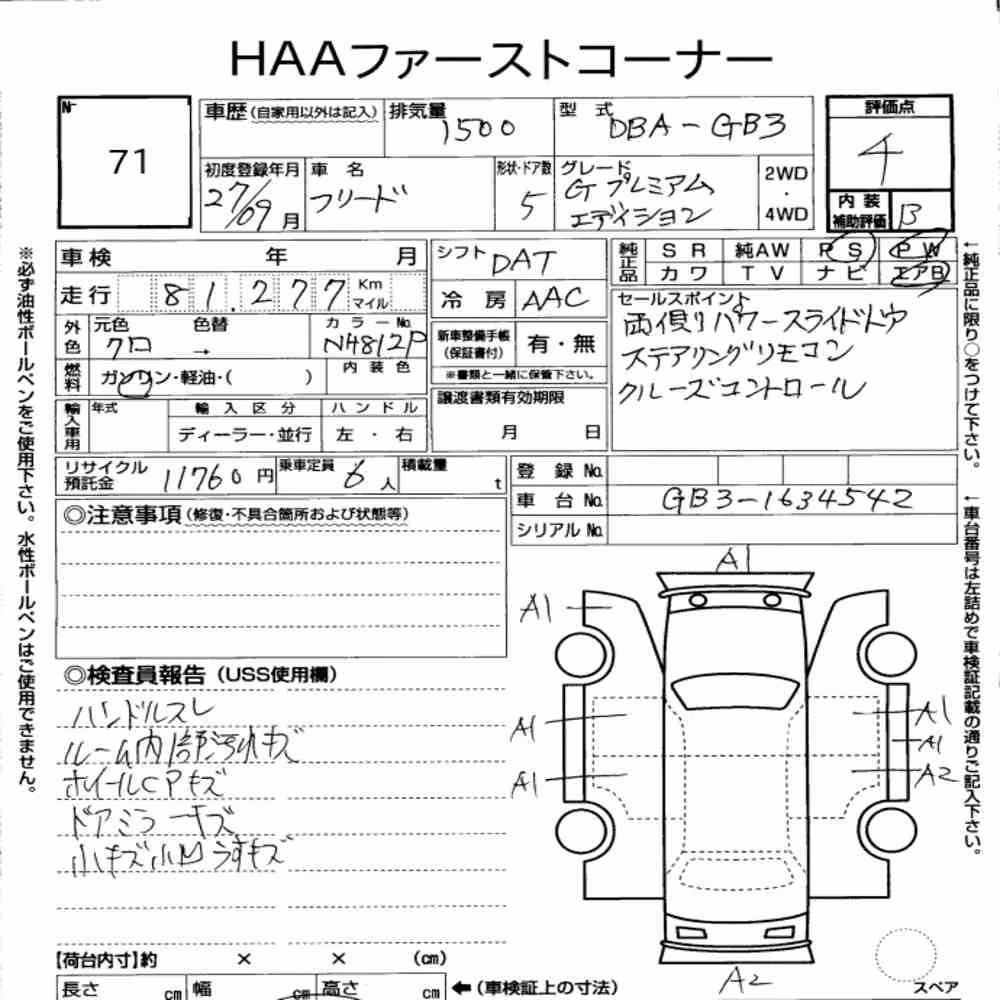 HAAファーストコーナー
No 71
車歴(自家用以外は記入) 排気量 1500 型式 DBA-GB3
評価点 4
初度登録年月 27/09月 車名 フリード 形状・ドア数 5 グレード Gプレミアムエディション 2WD・4WD
内装補助評価 B
車検 年 月 シフト DAT
純正品 SR 純AW PS PW
カワ TV ナビ エアB
走行 81,277 Km マイル 冷房 AAC
セールスポイント
両側パワースライドドア
ステアリングリモコン
クルーズコントロール
外色 元色 クロ 色替 → カラーNo. N4812P
新車整備手帳(保証書付) 有・無
※書類と一緒に保管下さい。
燃料 ガソリン・軽油・( ) 内装色
譲渡書類有効期限 月 日
輸入車用 年式 輸入区分 ハンドル
ディーラー・並行 左・右
リサイクル預託金 11760円 乗車定員 6人 積載量 t
登録No.
車台No. GB3-1634542
シリアルNo.
◎注意事項(修復・不具合箇所および状態等)
◎検査員報告(USS使用欄)
ハンドルスレ
ルーム内部汚れキズ
ホイールCPキズ
ドアミラーキズ
小キズ小凹うすキズ
A1
A1
A1
A1
A1
A1
A2
A2
スペア
【荷台内寸】約 × × (cm)
長さ cm 幅 cm 高さ cm ←(車検証上の寸法)
※必ず油性ボールペンをご使用下さい。水性ボールペンはご使用できません。
←純正品に限り○をつけて下さい。
←車台番号は左詰めで車検証記載の通りご記入下さい。